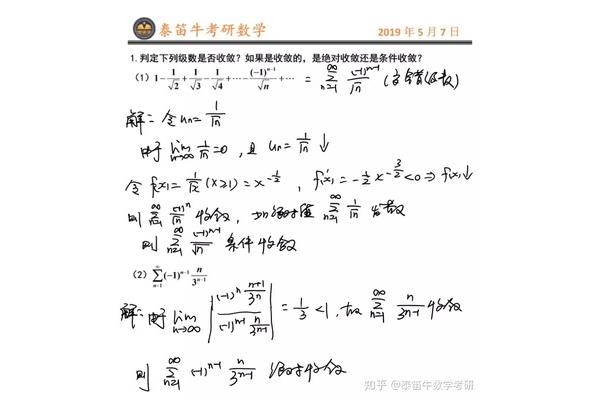 泰笛牛考研数学 2019年5月7日
1. 判定下列级数是否收敛？如果是收敛的，是绝对收敛还是条件收敛？
（1）1-1/√2+1/√3-1/√4+⋯+(-1)^(n-1)/√n+⋯ = ∑_{n=1}^{∞} (-1)^(n-1)/√n (交错级数)
解：令 u_n = 1/√n
由于 lim_{n→∞} 1/√n = 0, 且 u_n = 1/√n ↓
令 f(x) = 1/√x (x≥1) = x^(-1/2), f'(x) = -1/2 x^(-3/2) < 0 ⇒ f(x)↓
则 ∑_{n=1}^{∞} (-1)^n/√n 收敛, 加绝对值 ∑_{n=1}^{∞} 1/√n 发散
则 ∑_{n=1}^{∞} (-1)^(n-1)/√n 条件收敛
（2）∑_{n=1}^{∞} (-1)^(n-1) n/3^(n-1)
解：由于 lim_{n→∞} |(-1)^n (n+1)/3^n / (-1)^(n-1) n/3^(n-1)| = 1/3 < 1, 故 ∑_{n=1}^{∞} n/3^(n-1) 收敛
则 ∑_{n=1}^{∞} (-1)^(n-1) n/3^(n-1) 绝对收敛
知乎 @泰笛牛数学考研